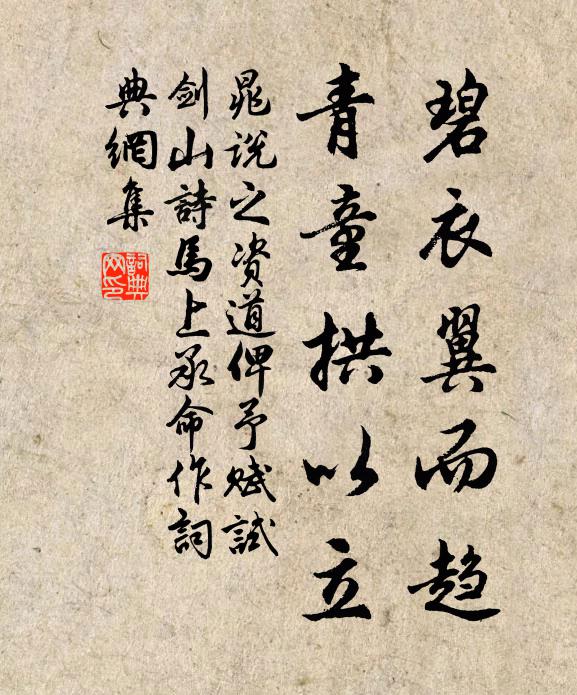 碧衣翼而趋
青童拱以立
晁说之资道俾予赋試
劍山詩馬上承命作詞
典網集
詞典
网印